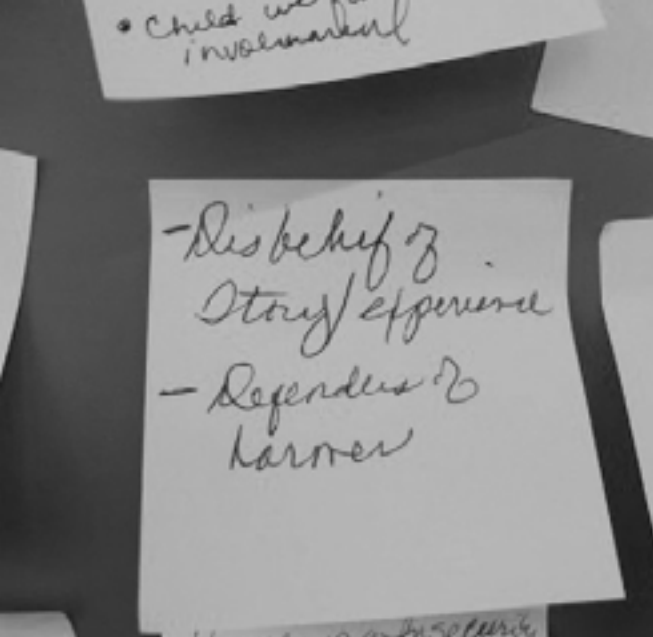 • Child
involvement
- Disbelief of
Story/experience
- Defenders of
harmer